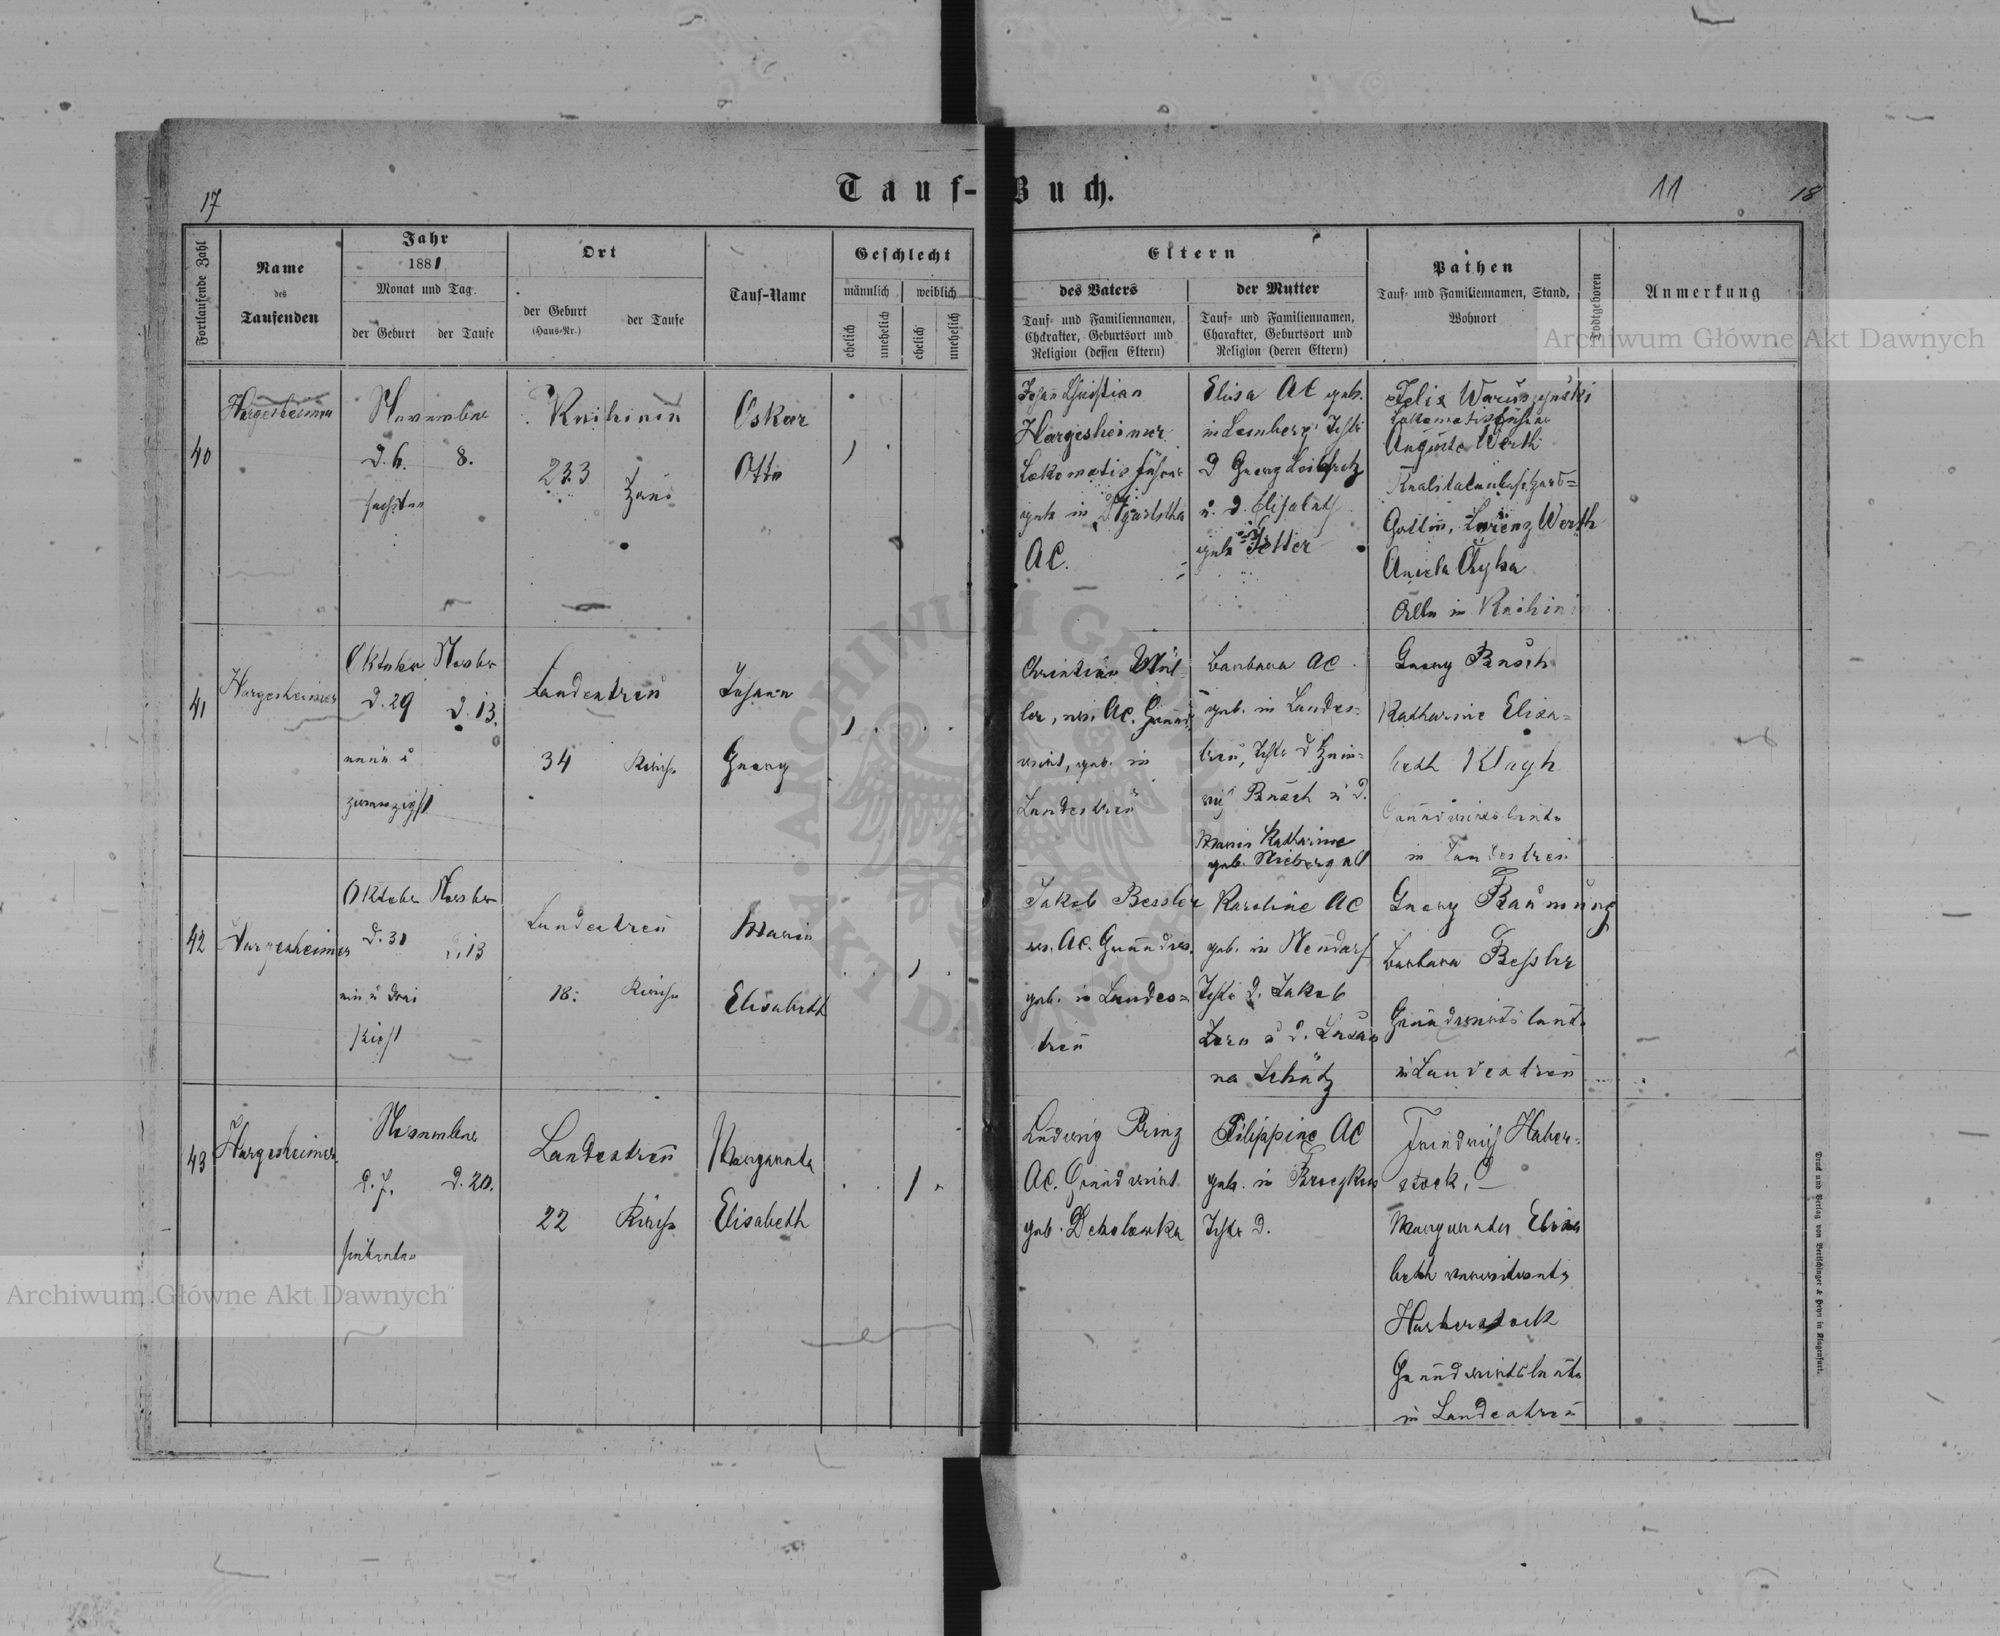 Tauf-Buch.
17
11
18
Fortlaufende Zahl
Name
des
Taufenden
Jahr
1881
Monat und Tag.
der Geburt
der Taufe
Ort
der Geburt
(Haus-Nr.)
der Taufe
Tauf-Name
Geschlecht
männlich
weiblich
ehelich
unehelich
ehelich
unehelich
Eltern
des Vaters
Tauf- und Familiennamen,
Charakter, Geburtsort und
Religion (dessen Eltern)
der Mutter
Tauf- und Familiennamen,
Charakter, Geburtsort und
Religion (deren Eltern)
Pathen
Tauf- und Familiennamen, Stand,
Wohnort
Todtgeboren
Anmerkung
40
Hargesheimer
November
d. 6.
8.
sechsten
Knihinin
233
Haus
Oskar
Otto
Johann Christian
Hargesheimer
Lokomotivführer
geb. in
AC.
Elisa AC geb.
in Lemberg Tchtr
d Georg
u. d. Elisabeth
geb.
Felix
Lokomotivführer
Auguste Werth
Realitätenbesitzers=
Gattin, Lorenz Werth
Aniela
Alle in Knihinin
41
Hargesheimer
Oktober Novbr
d. 29
d. 13.
neun u
zwanzigst
Landestreu
34
Kirche
Johann
Georg
Christian Mül-
ler, ev. AC. Grund-
wirt, geb. in
Landestreu
Barbara AC
geb. in Landes-
treu, Tchtr d Hein-
rich Busch u d.
Maria Katharine
geb. Niebergall
Georg Busch
Katharine Elisa=
beth
Grundwirtsleute
in Landestreu
42
Hargesheimer
Oktober Novbr
d. 31
d. 13
ein u drei
ßigst
Landestreu
18.
Kirche
Maria
Elisabeth
Jakob Bessler
ev. AC. Grundwirt
geb. in Landes=
treu
Karoline AC
geb. in Neudorf
Tchtr d. Jakob
Zorn u d. Susan
na Schätz
Georg Baumung
Barbara Bessler
Grundwirtsleute
in Landestreu
43
Hargesheimer
November
d. 7.
d. 20.
siebenten
Landestreu
22
Kirche
Margareta
Elisabeth
Ludwig Prinz
AC. Grundwirt
geb. Debolowka
Filippine AC
geb. in
Tchtr d.
Friedrich Haber-
stock,
Margareta Elisa
beth verwitwete
Haberstock
Grundwirtsleute
in Landestreu
Druck und Verlag von Bertschinger & Heyn in Klagenfurt.
Archiwum Główne Akt Dawnych
Archiwum Główne Akt Dawnych